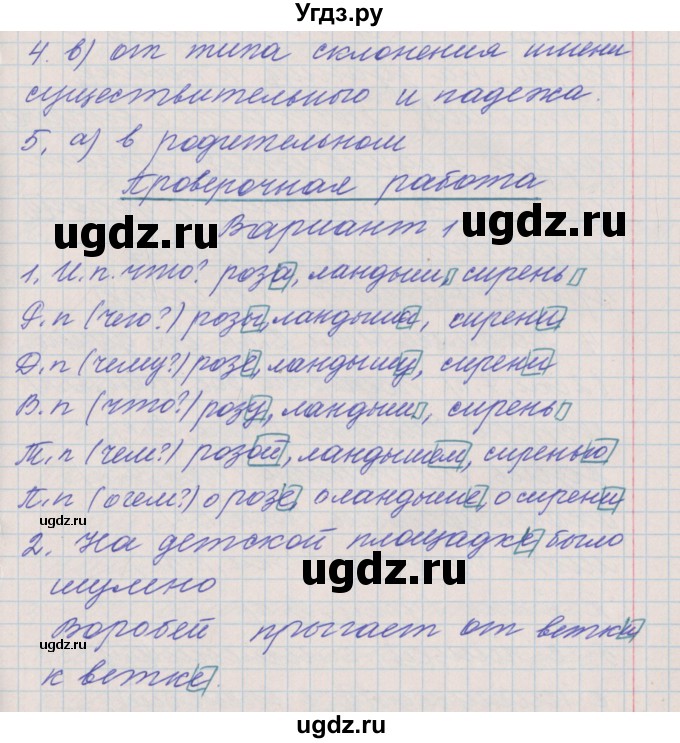 Угдз.ру
4. в) от типа склонения имени
существительного и падежа.
5. а) в родительном
Проверочная работа
ugdz.ru
ugdz.ru
Вариант 1
1. И.п. что? роза, ландыш, сирень
Р.п (чего?) розы, ландыша, сирени
Д.п (чему?) розе, ландышу, сирени
В.п (что?) розу, ландыш, сирень
Т.п (чем?) розой, ландышем, сиренью
П.п (о чем?) о розе, о ландыше, о сирени
ugdz.ru
2. На детской площадке было
ugdz.ru
шумно
Воробей прыгает от ветки
ugdz.ru
к ветке.
ugdz.ru